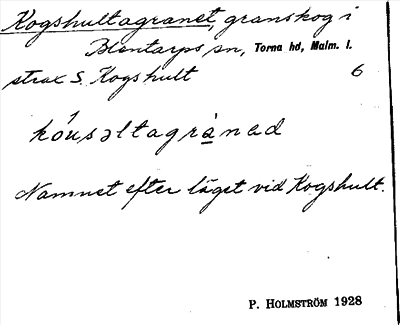 Kogshultagranet, granskog i
Blentarps sn, Torna hd, Malm. l.
strax S. Kogshult 6
kóusəltagrànəd
Namnet efter läget vid Kogshult.
P. HOLMSTRÖM 1928